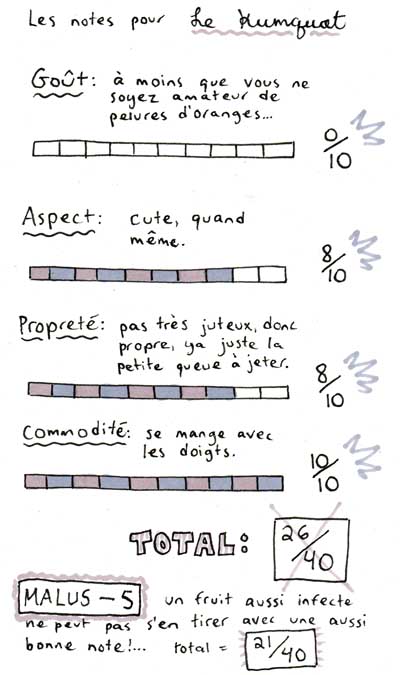 Les notes pour Le Kumquat
Goût: à moins que vous ne
soyez amateur de
pelures d'oranges...
0/10
Aspect: cute, quand
même.
8/10
Propreté: pas très juteux, donc
propre, ya juste la
petite queue à jeter.
8/10
Commodité: se mange avec
les doigts.
10/10
TOTAL: 26/40
MALUS-5 un fruit aussi infecte
ne peut pas s'en tirer avec une aussi
bonne note!... total = 21/40